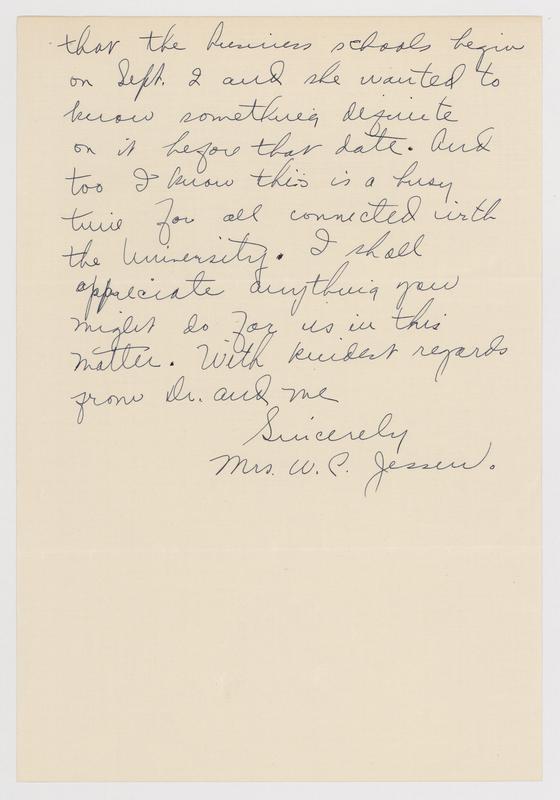 that the business schools begin
on Sept. 2 and she wanted to
know something definite
on it before that date. And
too I know this is a busy
time for all connected with
the University. I shall
appreciate anything you
might do for us in this
matter. With kindest regards
from Dr. and me
Sincerely
Mrs. W. P. Jessen.